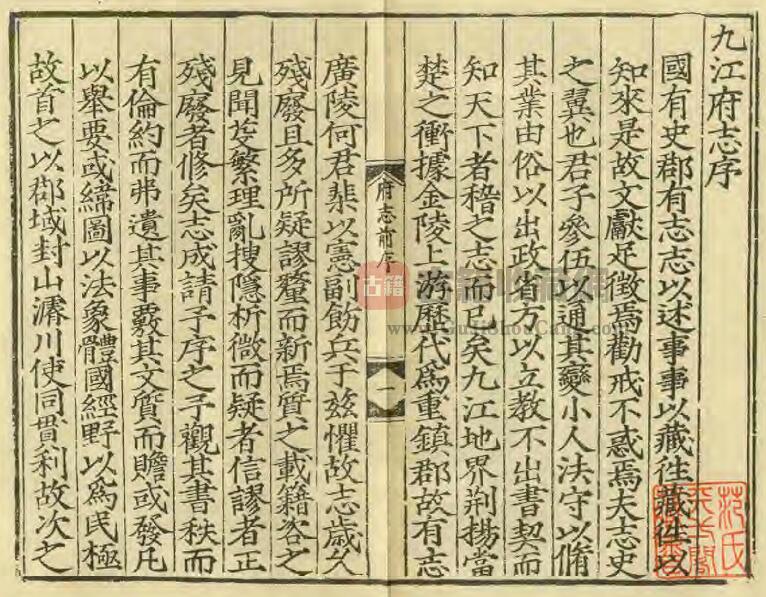 九江府志序
國有史郡有志志以述事事以藏徃藏徃以
知來是故文獻足徵焉勸戒不惑焉夫志史
之翼也君子參伍以通其變小人法守以脩
其業由俗以出政省方以立教不出書契而
知天下者稽之志而已矣九江地界荆揚當
楚之衝據金陵上游歷代爲重鎮郡故有志
府志前序
一
廣陵何君棐以憲副飭兵于兹懼故志歲久
殘廢且多所疑謬釐而新焉質之載籍咨之
見聞芟繁理亂搜隱析微而疑者信謬者正
殘廢者修矣志成請予序之予觀其書秩而
有倫約而弗遺其事覈其文質而贍或發凡
以舉要或締圖以法象體國經野以爲民極
故首之以郡域封山濬川使同貫利故次之
古籍
www.GuJiShouCang.com
范氏
天一閣